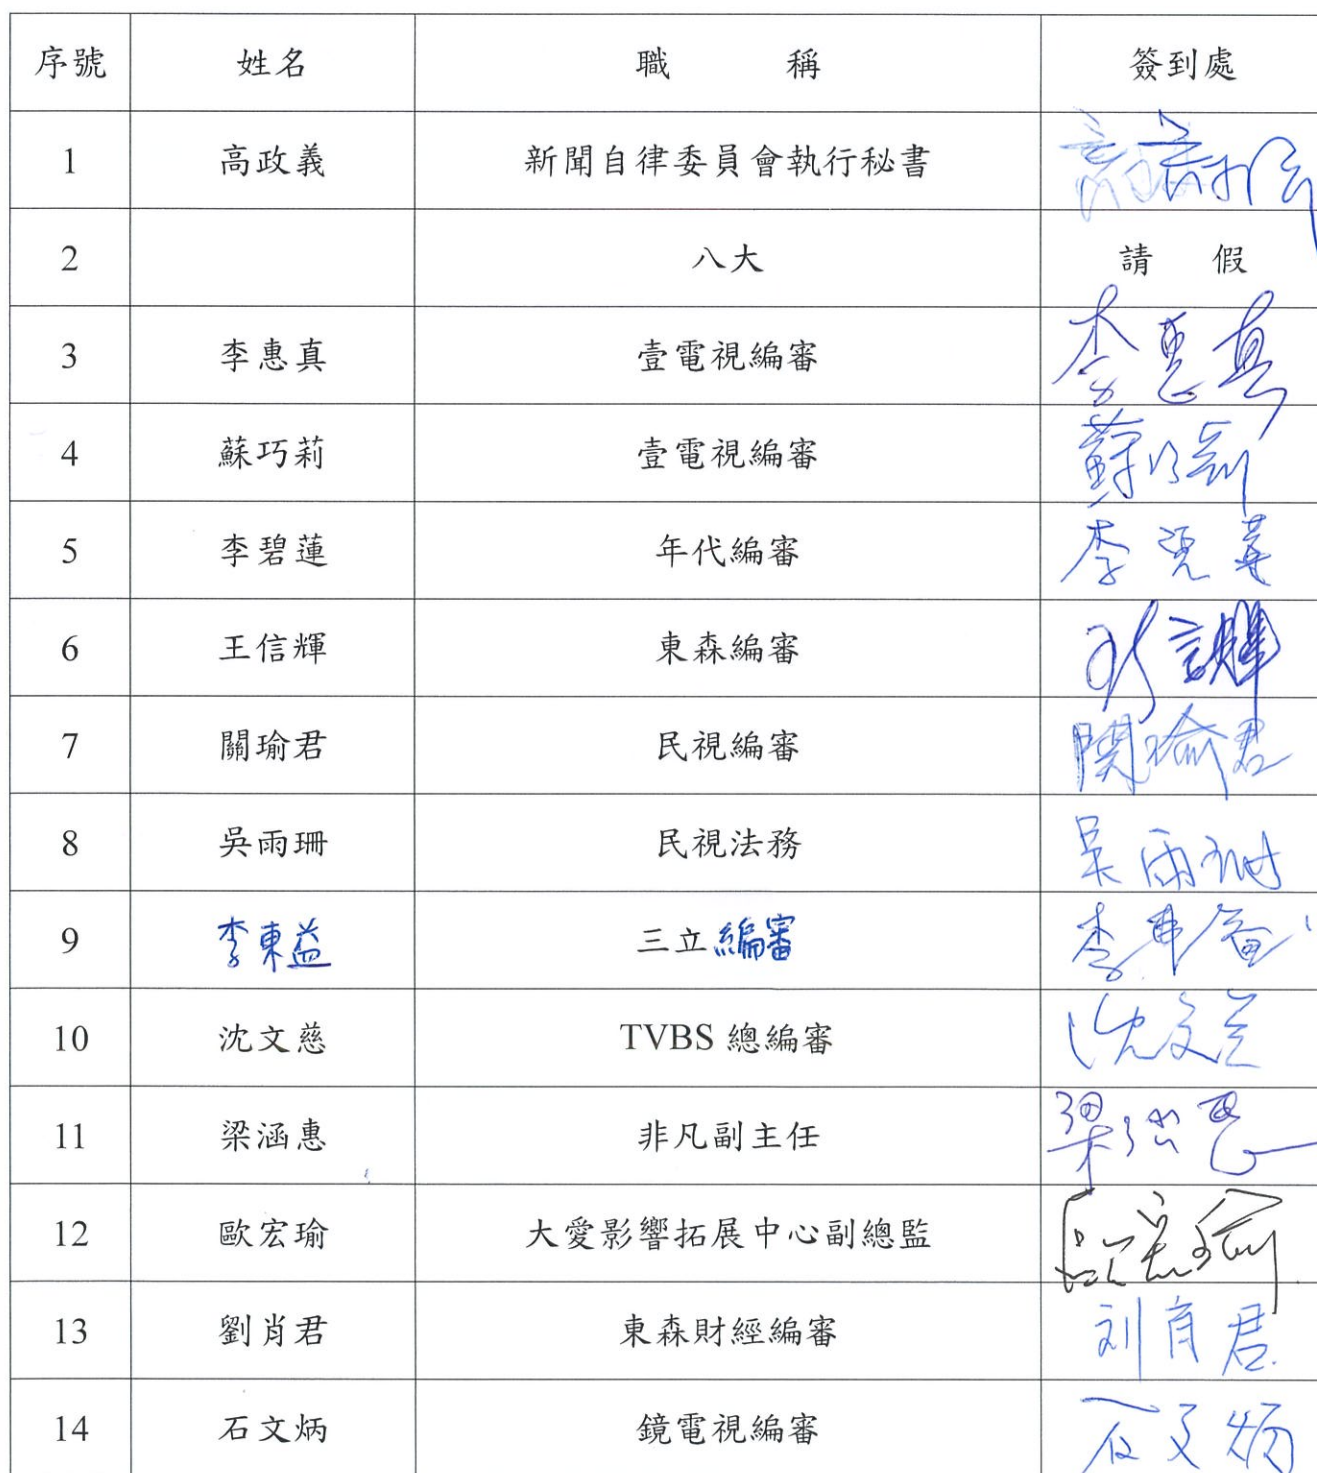 序號 姓名 職 稱 簽到處
1 高政義 新聞自律委員會執行秘書
2 八大 請 假
3 李惠真 壹電視編審 李惠真
4 蘇巧莉 壹電視編審 蘇巧莉
5 李碧蓮 年代編審 李碧蓮
6 王信輝 東森編審
7 關瑜君 民視編審 關瑜君
8 吳雨珊 民視法務 吳雨珊
9 李東益 三立編審
10 沈文慈 TVBS 總編審 沈文慈
11 梁涵惠 非凡副主任 梁涵惠
12 歐宏瑜 大愛影響拓展中心副總監 歐宏瑜
13 劉肖君 東森財經編審 刘肖君
14 石文炳 鏡電視編審 石文炳